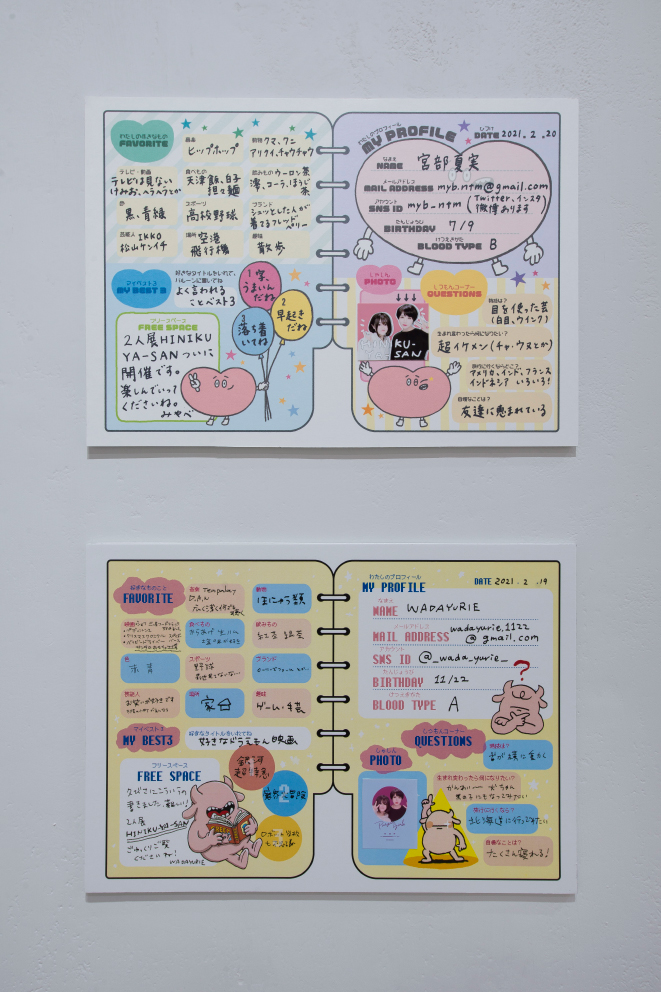 わたしの好きなもの
FAVORITE
音楽
ヒップホップ
動物 クマ、ワニ
アリクイ、チャウチャウ
テレビ・動画
テレビは見ない
食べもの
天津飯、白子
担々麺
飲みもの ウーロン茶
コーラ、ほうじ
茶
色
黒、青緑
スポーツ
高校野球
ブランド
シュッとした人が
着てるフレッド
ペリー
芸能人 IKKO
松山ケンイチ
場所 空港
飛行機
趣味
散歩
マイベスト3
MY BEST 3
好きなタイトルをいれて、
バルーンに書いてね
よく言われる
ことベスト3
1 実、
うまいん
だね
2
早起き
だね
3
落ち着
いてね
フリースペース
FREE SPACE
2人展HINIKU
YA-SANついに
開催です。
楽しんでいって
くださいね。
みやべ
わたしのプロフィール
MY PROFILE
DATE 2021.2.20
なまえ
NAME 宮部夏実
メールアドレス
MAIL ADDRESS myb.ntm@gmail.com
アカウント
SNS ID myb_ntm (Twitter、インスタ
微博あります)
たんじょうび
BIRTHDAY 7/9
けつえきがた
BLOOD TYPE B
しゃしん
PHOTO
↓↓↓
KU-
SAN
しつもんコーナー
QUESTIONS
特技は?
目を使った芸
(白目、ウインク)
生まれ変わったら何になりたい?
超イケメン(チャ・ウヌとか)
旅行に行くならどこ?
アメリカ、インド、フランス
インドネシア いろいろ!
自慢なことは?
友達に恵まれている
好きなものこと
FAVORITE
音楽 Tempalay
動物
食べもの
飲みもの
紅茶 緑茶
色
スポーツ
野球
ブランド
芸能人
お笑いが好きです
場所
家
趣味
ゲーム・手芸
マイベスト3
MY BEST3
好きなタイトルをいれてね
好きなドラえもん映画
フリースペース
FREE SPACE
2人展
HINIKU-YA-SAN
ごゆっくりご覧
くださいね!
WADAYURIE
BEEF
わたしのプロフィール
MY PROFILE
DATE 2021.2.19
なまえ
NAME WADAYURIE
メールアドレス
MAIL ADDRESS wadayurie.1122
@gmail.com
アカウント
SNS ID @_wada_yurie_
たんじょうび
BIRTHDAY 11/22
けつえきがた
BLOOD TYPE A
?
しゃしん
PHOTO
しつもんコーナー
QUESTIONS
特技は?
生まれ変わったら何になりたい?
旅行に行くなら?
北海道に行ってみたい
自慢なことは?
たくさん寝れる!